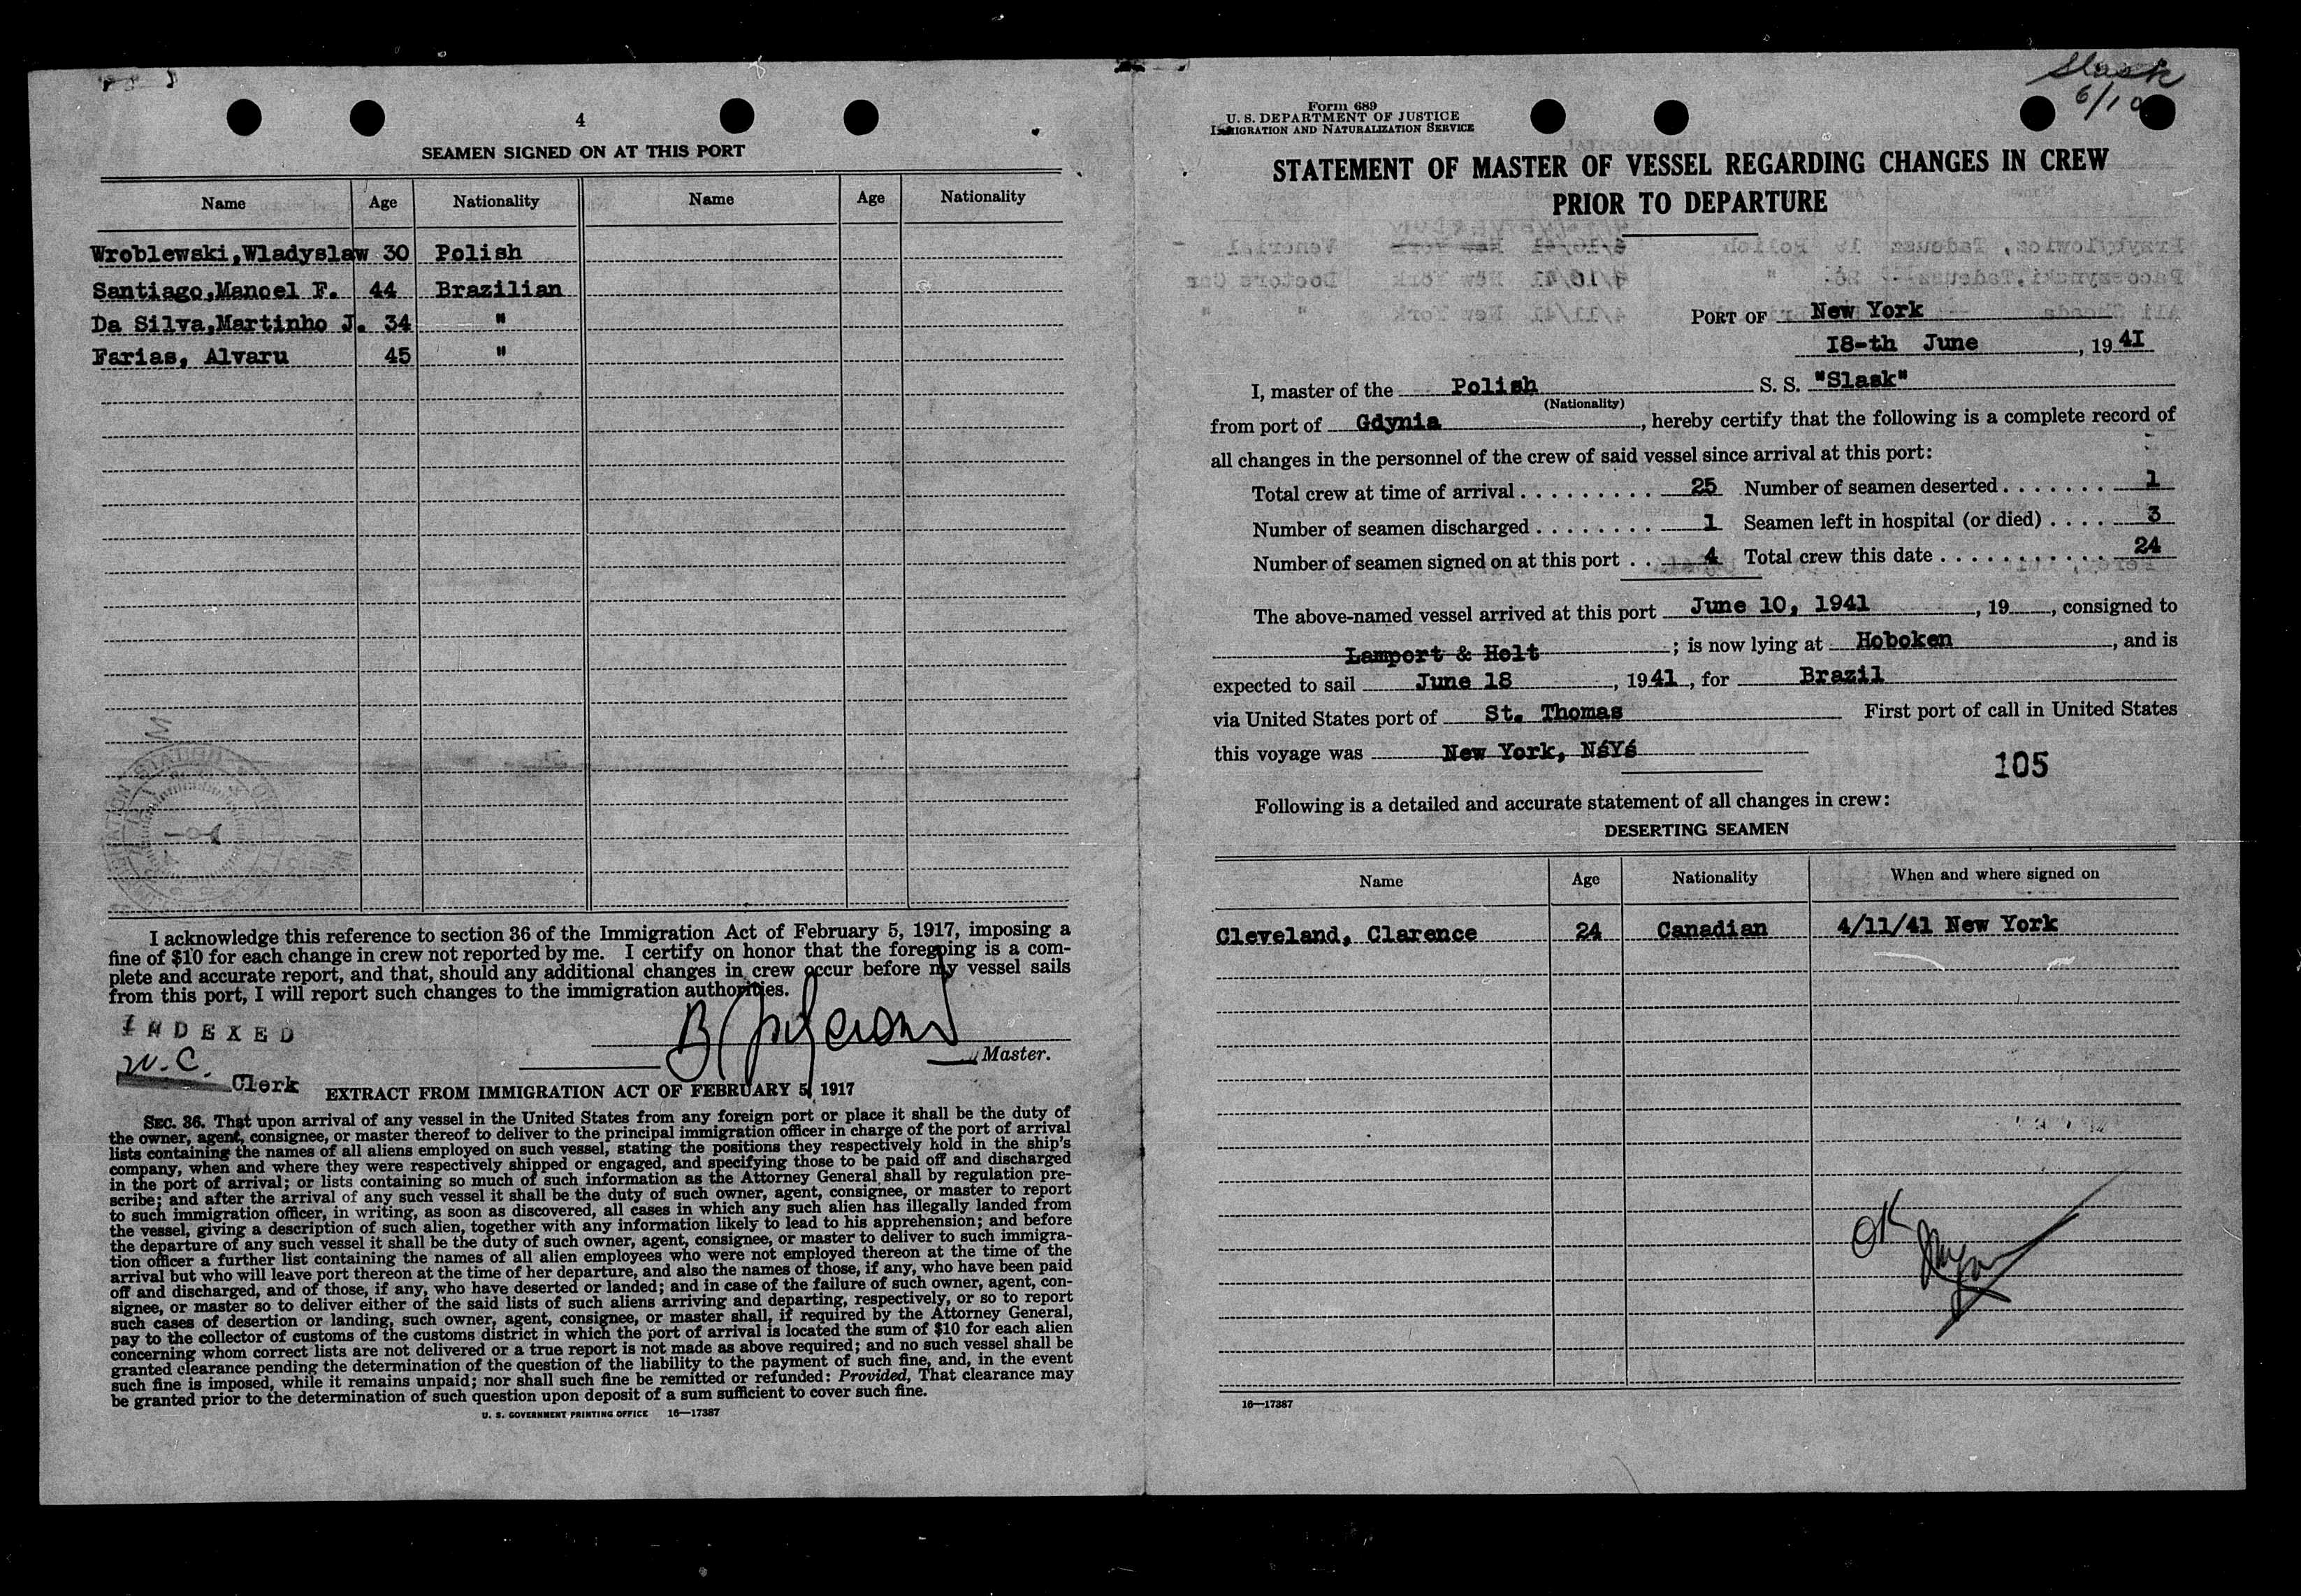 4
SEAMEN SIGNED ON AT THIS PORT
Name Age Nationality Name Age Nationality
Wroblewski,Wladyslaw 30 Polish
Santiago,Manoel F. 44 Brazilian
Da Silva,Martinho J. 34 "
Farias, Alvaru 45 "
I acknowledge this reference to section 36 of the Immigration Act of February 5, 1917, imposing a
fine of $10 for each change in crew not reported by me. I certify on honor that the foregoing is a com-
plete and accurate report, and that, should any additional changes in crew occur before my vessel sails
from this port, I will report such changes to the immigration authorities.
INDEXED
W.C.
Clerk
Master.
EXTRACT FROM IMMIGRATION ACT OF FEBRUARY 5, 1917
SEC. 36. That upon arrival of any vessel in the United States from any foreign port or place it shall be the duty of
the owner, agent, consignee, or master thereof to deliver to the principal immigration officer in charge of the port of arrival
lists containing the names of all aliens employed on such vessel, stating the positions they respectively hold in the ship's
company, when and where they were respectively shipped or engaged, and specifying those to be paid off and discharged
in the port of arrival; or lists containing so much of such information as the Attorney General shall by regulation pre-
scribe; and after the arrival of any such vessel it shall be the duty of such owner, agent, consignee, or master to report
to such immigration officer, in writing, as soon as discovered, all cases in which any such alien has illegally landed from
the vessel, giving a description of such alien, together with any information likely to lead to his apprehension; and before
the departure of any such vessel it shall be the duty of such owner, agent, consignee, or master to deliver to such immigra-
tion officer a further list containing the names of all alien employees who were not employed thereon at the time of the
arrival but who will leave port thereon at the time of her departure, and also the names of those, if any, who have been paid
off and discharged, and of those, if any, who have deserted or landed; and in case of the failure of such owner, agent, con-
signee, or master so to deliver either of the said lists of such aliens arriving and departing, respectively, or so to report
such cases of desertion or landing, such owner, agent, consignee, or master shall, if required by the Attorney General,
pay to the collector of customs of the customs district in which the port of arrival is located the sum of $10 for each alien
concerning whom correct lists are not delivered or a true report is not made as above required; and no such vessel shall be
granted clearance pending the determination of the question of the liability to the payment of such fine, and, in the event
such fine is imposed, while it remains unpaid; nor shall such fine be remitted or refunded: Provided, That clearance may
be granted prior to the determination of such question upon deposit of a sum sufficient to cover such fine.
U. S. GOVERNMENT PRINTING OFFICE 16—17387
Slask
6/10
Form 689
U. S. DEPARTMENT OF JUSTICE
IMMIGRATION AND NATURALIZATION SERVICE
STATEMENT OF MASTER OF VESSEL REGARDING CHANGES IN CREW
PRIOR TO DEPARTURE
PORT OF New York
I8-th June, 19 4I
I, master of the Polish S. S. "Slask"
(Nationality)
from port of Gdynia, hereby certify that the following is a complete record of
all changes in the personnel of the crew of said vessel since arrival at this port:
Total crew at time of arrival . . . . . . . . . 25 Number of seamen deserted . . . . . . . 1
Number of seamen discharged . . . . . . . . 1 Seamen left in hospital (or died) . . . . 3
Number of seamen signed on at this port . . 4 Total crew this date . . . . . . . . . . . 24
The above-named vessel arrived at this port June 10, 1941, 19, consigned to
Lamport & Holt; is now lying at Hoboken, and is
expected to sail June 18, 1941, for Brazil
via United States port of St. Thomas First port of call in United States
this voyage was New York, NśYś
105
Following is a detailed and accurate statement of all changes in crew:
DESERTING SEAMEN
Name Age Nationality When and where signed on
Cleveland, Clarence 24 Canadian 4/11/41 New York
OK
16—17387